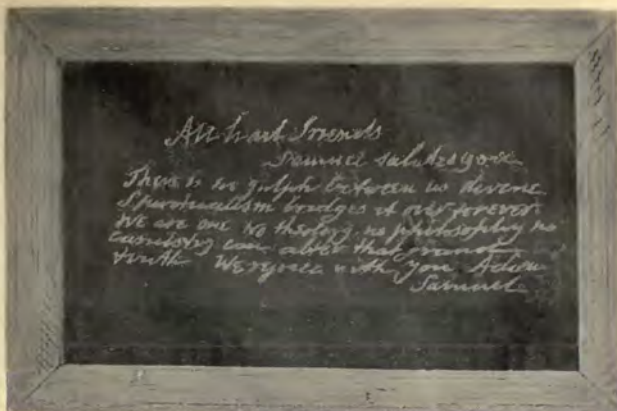 All hail Friends
Samuel salutes you
There is no gulph between us divine
Spiritualism bridges it over forever
We are one No theology, no philosophy no
can alter that grand
truth We rejoice with you Adieu
Samuel